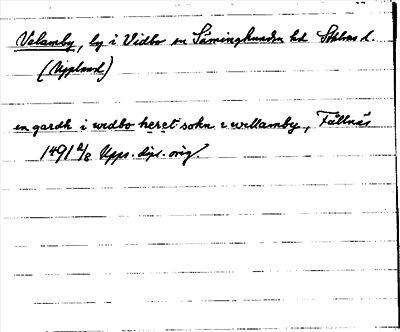 Valamby, by i Vidbo sn Säminghundra hd Sthlms l.
(Uppland)
en gardh i vidbo heret sokn i wellamby, Fållnäs
1491 2/8 Upps. dipl. orig.